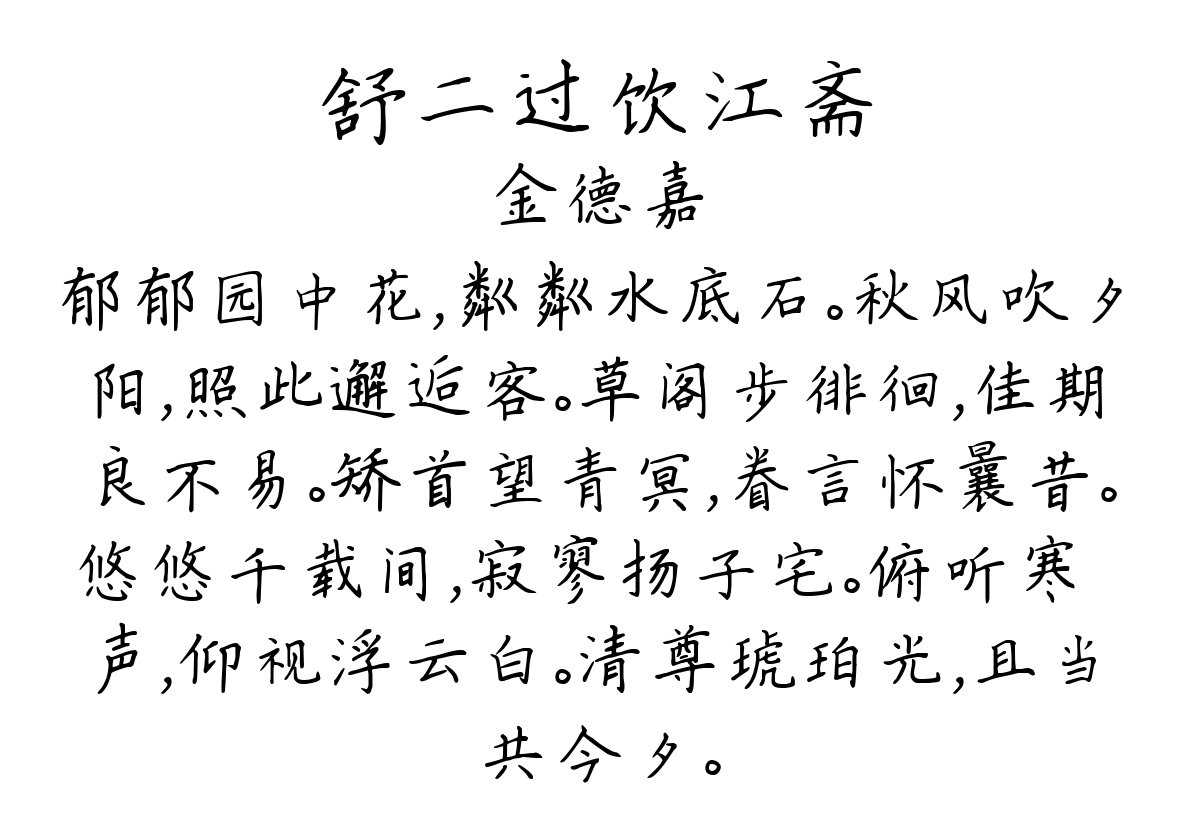 舒二过饮江斋
金德嘉
郁郁园中花,粼粼水底石。秋风吹夕
阳,照此邂逅客。草阁步徘徊,佳期
良不易。矫首望青冥,眷言怀曩昔。
悠悠千载间,寂寥扬子宅。俯听寒
声,仰视浮云白。清尊琥珀光,且当
共今夕。